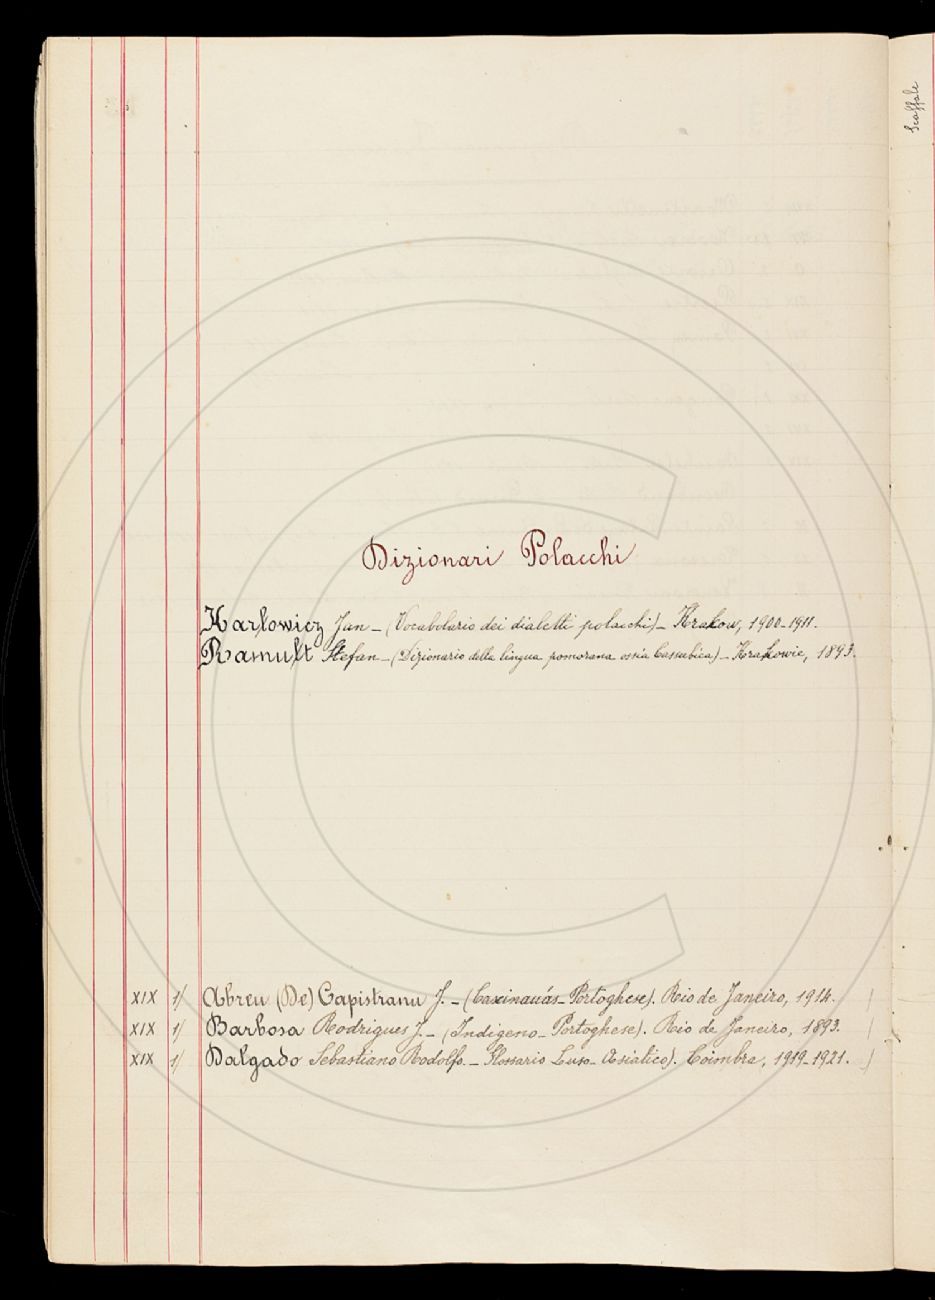 Scaffale
Dizionari Polacchi
Karłowicz Jan – (Vocabolario dei dialetti polacchi) – Krakow, 1900-1911.
Ramułt Stefan – (Dizionario della lingua pomorana ossia Cassubica) – Krakowie, 1893.
XIX 1/ Abreu (De) Capistranu J. – (Caxinauás-Portoghese). Rio de Janeiro, 1914.
XIX 1/ Barbosa Rodrigues J. – (Indigeno-Portoghese). Rio de Janeiro, 1893.
XIX 1/ Dalgado Sebastiano Rodolfo. – Glossario Luso-Asiatico). Coimbra, 1919-1921.